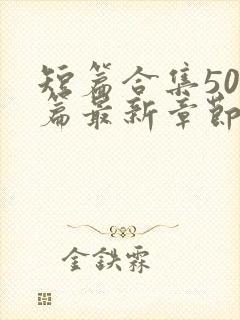 短篇合集50
篇最新章节
金铁霖